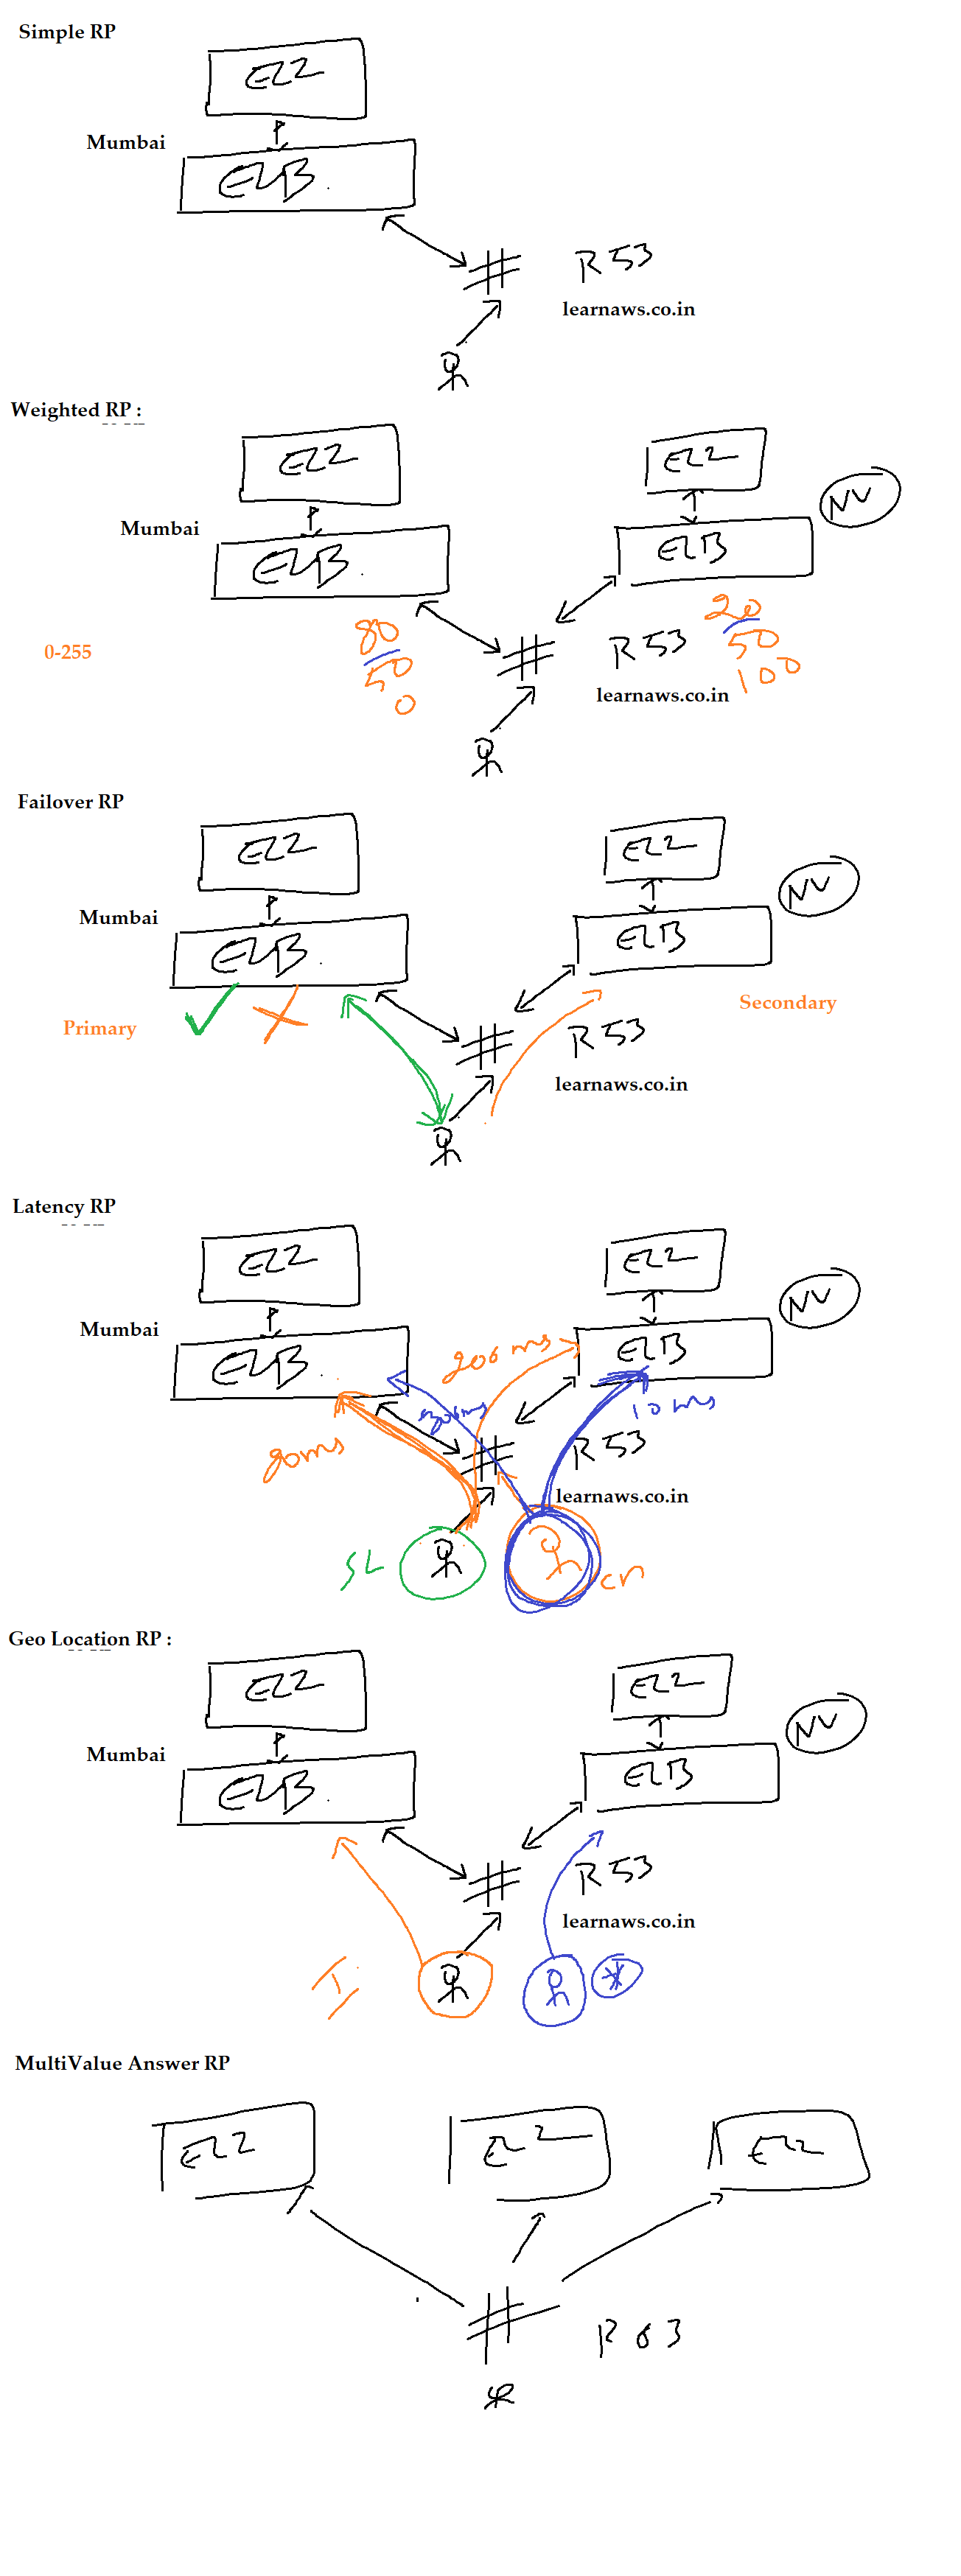 Simple RP
EC2
Mumbai
ELB
R 53
learnaws.co.in
Weighted RP :
EC2
EC2
NV
Mumbai
ELB
ELB
80
20
0-255
R 53
50
50
0
100
learnaws.co.in
Failover RP
EC2
EC2
NV
Mumbai
ELB
ELB
Primary
Secondary
R 53
learnaws.co.in
Latency RP
EC2
EC2
NV
Mumbai
ELB
200 ms
ELB
10 ms
80ms
R 53
learnaws.co.in
SL
cn
Geo Location RP :
EC2
EC2
NV
Mumbai
ELB
ELB
R 53
learnaws.co.in
I
*
MultiValue Answer RP
EC2
EC2
EC2
R 53